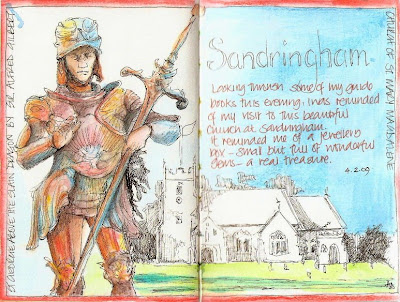 ST. GEORGE ABOVE THE CLARENCE
BY SIR ALFRED GILBERT
Sandringham.
Looking through some of my guide
books this evening, I was reminded
of my visit to this beautiful
church at Sandringham.
It reminded me of a jewellery
box - small but full of wonderful
gems - a real treasure.
4.2.09
CHURCH OF ST. MARY MAGDALENE